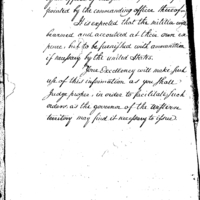 posted by the commanding officer thereof—
It is expected that the militia are
learned and accoutred at their own ex
pence, but to be furnished with ammunition
if necessary by the united States.
Your Excellency will make such
use of this information as you shall
Judge proper, in order to facilitate such
orders, as the governor of the western
territory may find it necessary to issue